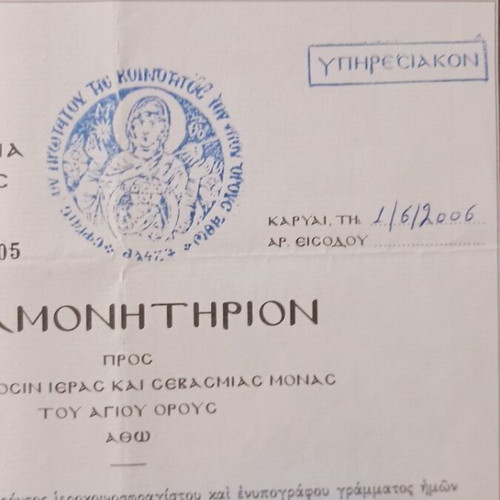 ΥΠΗΡΕΣΙΑΚΟΝ
ΤΗΣ ΚΟΙΝΟΤΗΤΟΣ ΤΟΥ ΑΓΙΟΥ ΟΡΟΥΣ ΑΘΩ
ΚΑΡΥΑΙ, ΤΗ. 1/6/2006
ΑΡ. ΕΙΣΟΔΟΥ
05
ΜΟΝΗΤΗΡΙΟΝ
ΠΡΟΣ
ΙΕΡΑΣ ΚΑΙ ΣΕΒΑΣΜΙΑΣ ΜΟΝΑΣ
ΤΟΥ ΑΓΙΟΥ ΟΡΟΥΣ
ΑΘΩ
ἱεροκοινοσφραγίστου καὶ ἐνυπογράφου γράμματος ἡμῶν